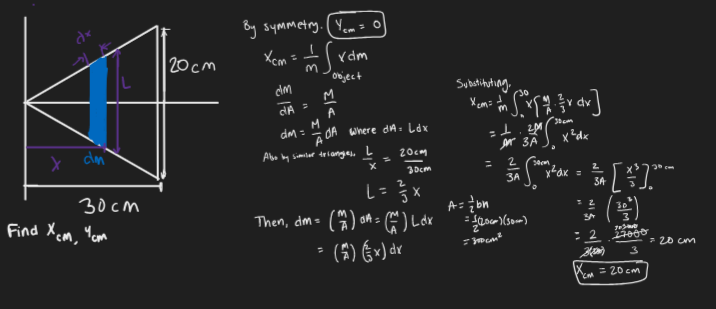 dx
20cm
L
x
dm
30cm
Find Xcm, Ycm
By symmetry, Ycm = 0
Xcm = 1/m ∫object x dm
dm/dA = M/A
dm = M/A dA where dA = Ldx
Also by similar triangles, L/x = 20cm/30cm
L = 2/3 x
Then, dm = (M/A) dA = (M/A) Ldx
= (M/A) (2/3 x) dx
Substituting,
Xcm = 1/m ∫0^30 x [M/A · 2/3 x dx]
= 1/m · 2M/3A ∫0^30cm x²dx
= 2/3A ∫0^30cm x²dx = 2/3A [x³/3]0^30cm
A = 1/2 bh
= 1/2 (20cm)(30cm)
= 300cm²
= 2/3A (30³/3)
= 2/3(300) · 27000/3 = 20 cm
Xcm = 20cm